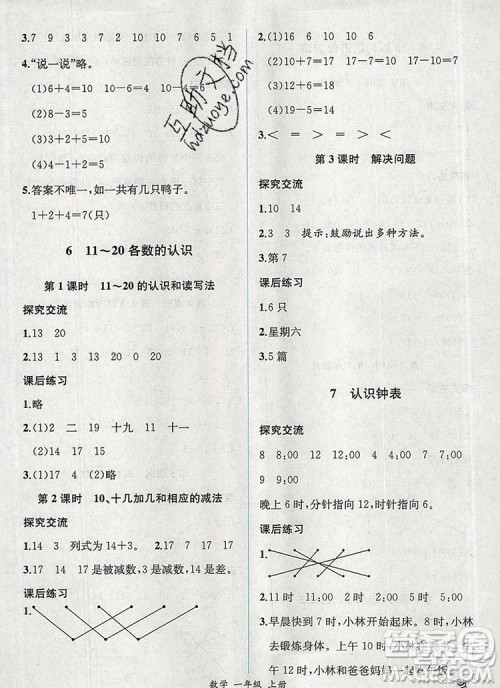 3.7 9 3 3 7 2 10 10 7 9
4.“说一说”略。
(1)6+4=10 10-6=4
(2)1+3+1=5
(3)3+2=5
(4)1+4+1=6
5.答案不唯一,如一共有几只鸭子。
1+2+4=7(只)
6 11～20各数的认识
第1课时 11～20的认识和读写法
探究交流
1.13 20
2.13 1 3 20 2 0
课后练习
1.略
2.(1)2 二 19 十九 11 十一
(2)14 17 20
3.(1)17 (2)略
第2课时 10、十几加几和相应的减法
探究交流
1.14 3 列式为14+3。 2.17 17 17
3.14是被减数,3是减数,11是差。
课后练习
1.
2.(1)12-2=10
(2)10+7=17
(3)16-10=6
(4)19-5=14
3.< = > = < >
第3课时 解决问题
探究交流
1.10 14
2.3 3 提示:鼓励说出多种方法。
3.第7
课后练习
1.6只
2.星期六
3.5篇
7 认识钟表
探究交流
8 8:00 12 12:00
9 9:00 12 12:00
晚上6时,分针指向12,时针指向6。
课后练习
1.
2.11时 11时 7时 6时
3.早晨快到7时,小林开始起床。8时,小林
去锻炼身体。上午10时,小林在家看书。
12时,小林和爸爸妈妈一起吃午饭
数学 一年级 上册
互助文档
hdzuoye.com